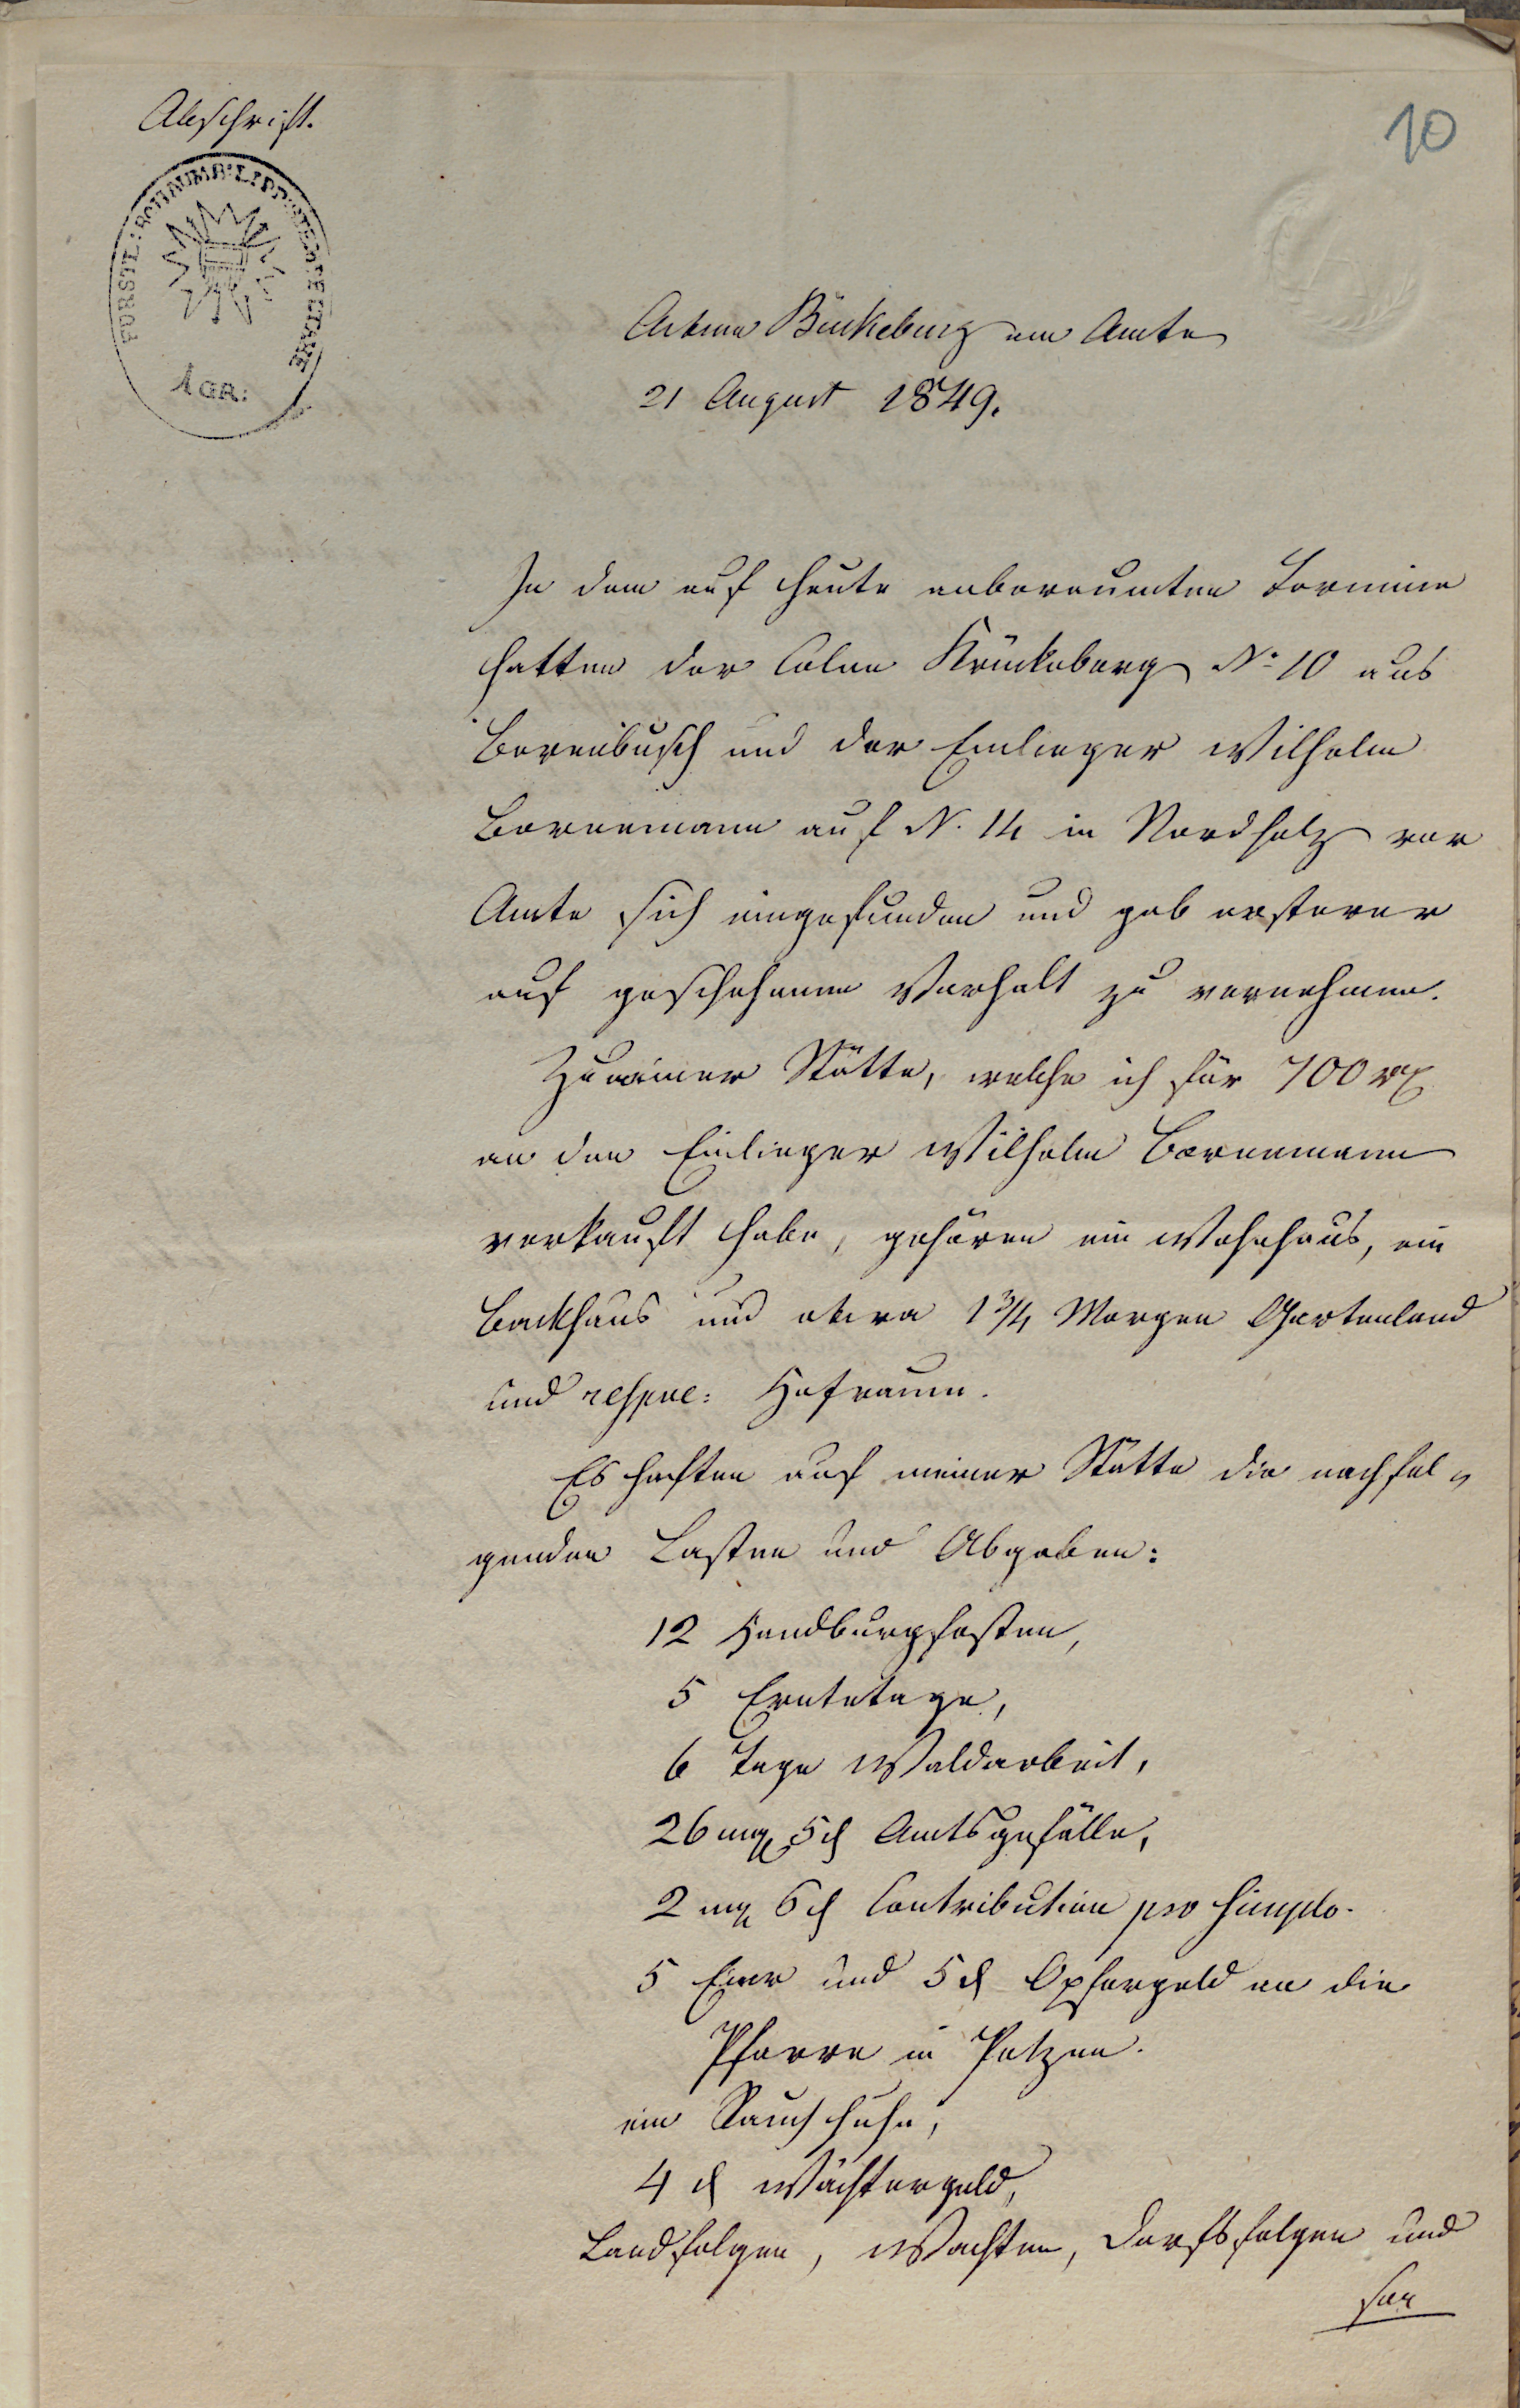 Abschrift.
10
FÜRSTL: SCHAUMB: LIPP: STEMPELTAXE
1 GR:
Actum Bückeburg am Amte
21 August 1849.
In dem auf heute anberaumten Termine
hatten der Colon Krückeberg No 10 aus
Berenbusch und der Einlieger Wilhelm
Bornemann auf N. 14 in Nordholz vor
Amte sich eingefunden und gab ersterer
auf geschehenen Vorhalt zu vernehmen.
Zu meiner Stätte, welche ich für 700 rt
an den Einlieger Wilhelm Bornemann
verkauft habe, gehören ein Wohnhaus, ein
Backhaus und etwa 1 3/4 Morgen Gartenland
und respve: Hofraum.
Es haften auf meiner Stätte die nachfol-
genden Lasten und Abgaben:
12 Handburgfesten,
5 Erntetage,
6 Tage Waldarbeit,
26 mg 5 d Amtsgefälle,
2 mg 6 d Contribution pro simplo.
5 Eier und 5 d Opfergeld an die
Pfarre in Petzen.
ein Rauchhuhn,
4 d Wächtergeld,
Landfolgen, Wachten, Dorfsfolgen und